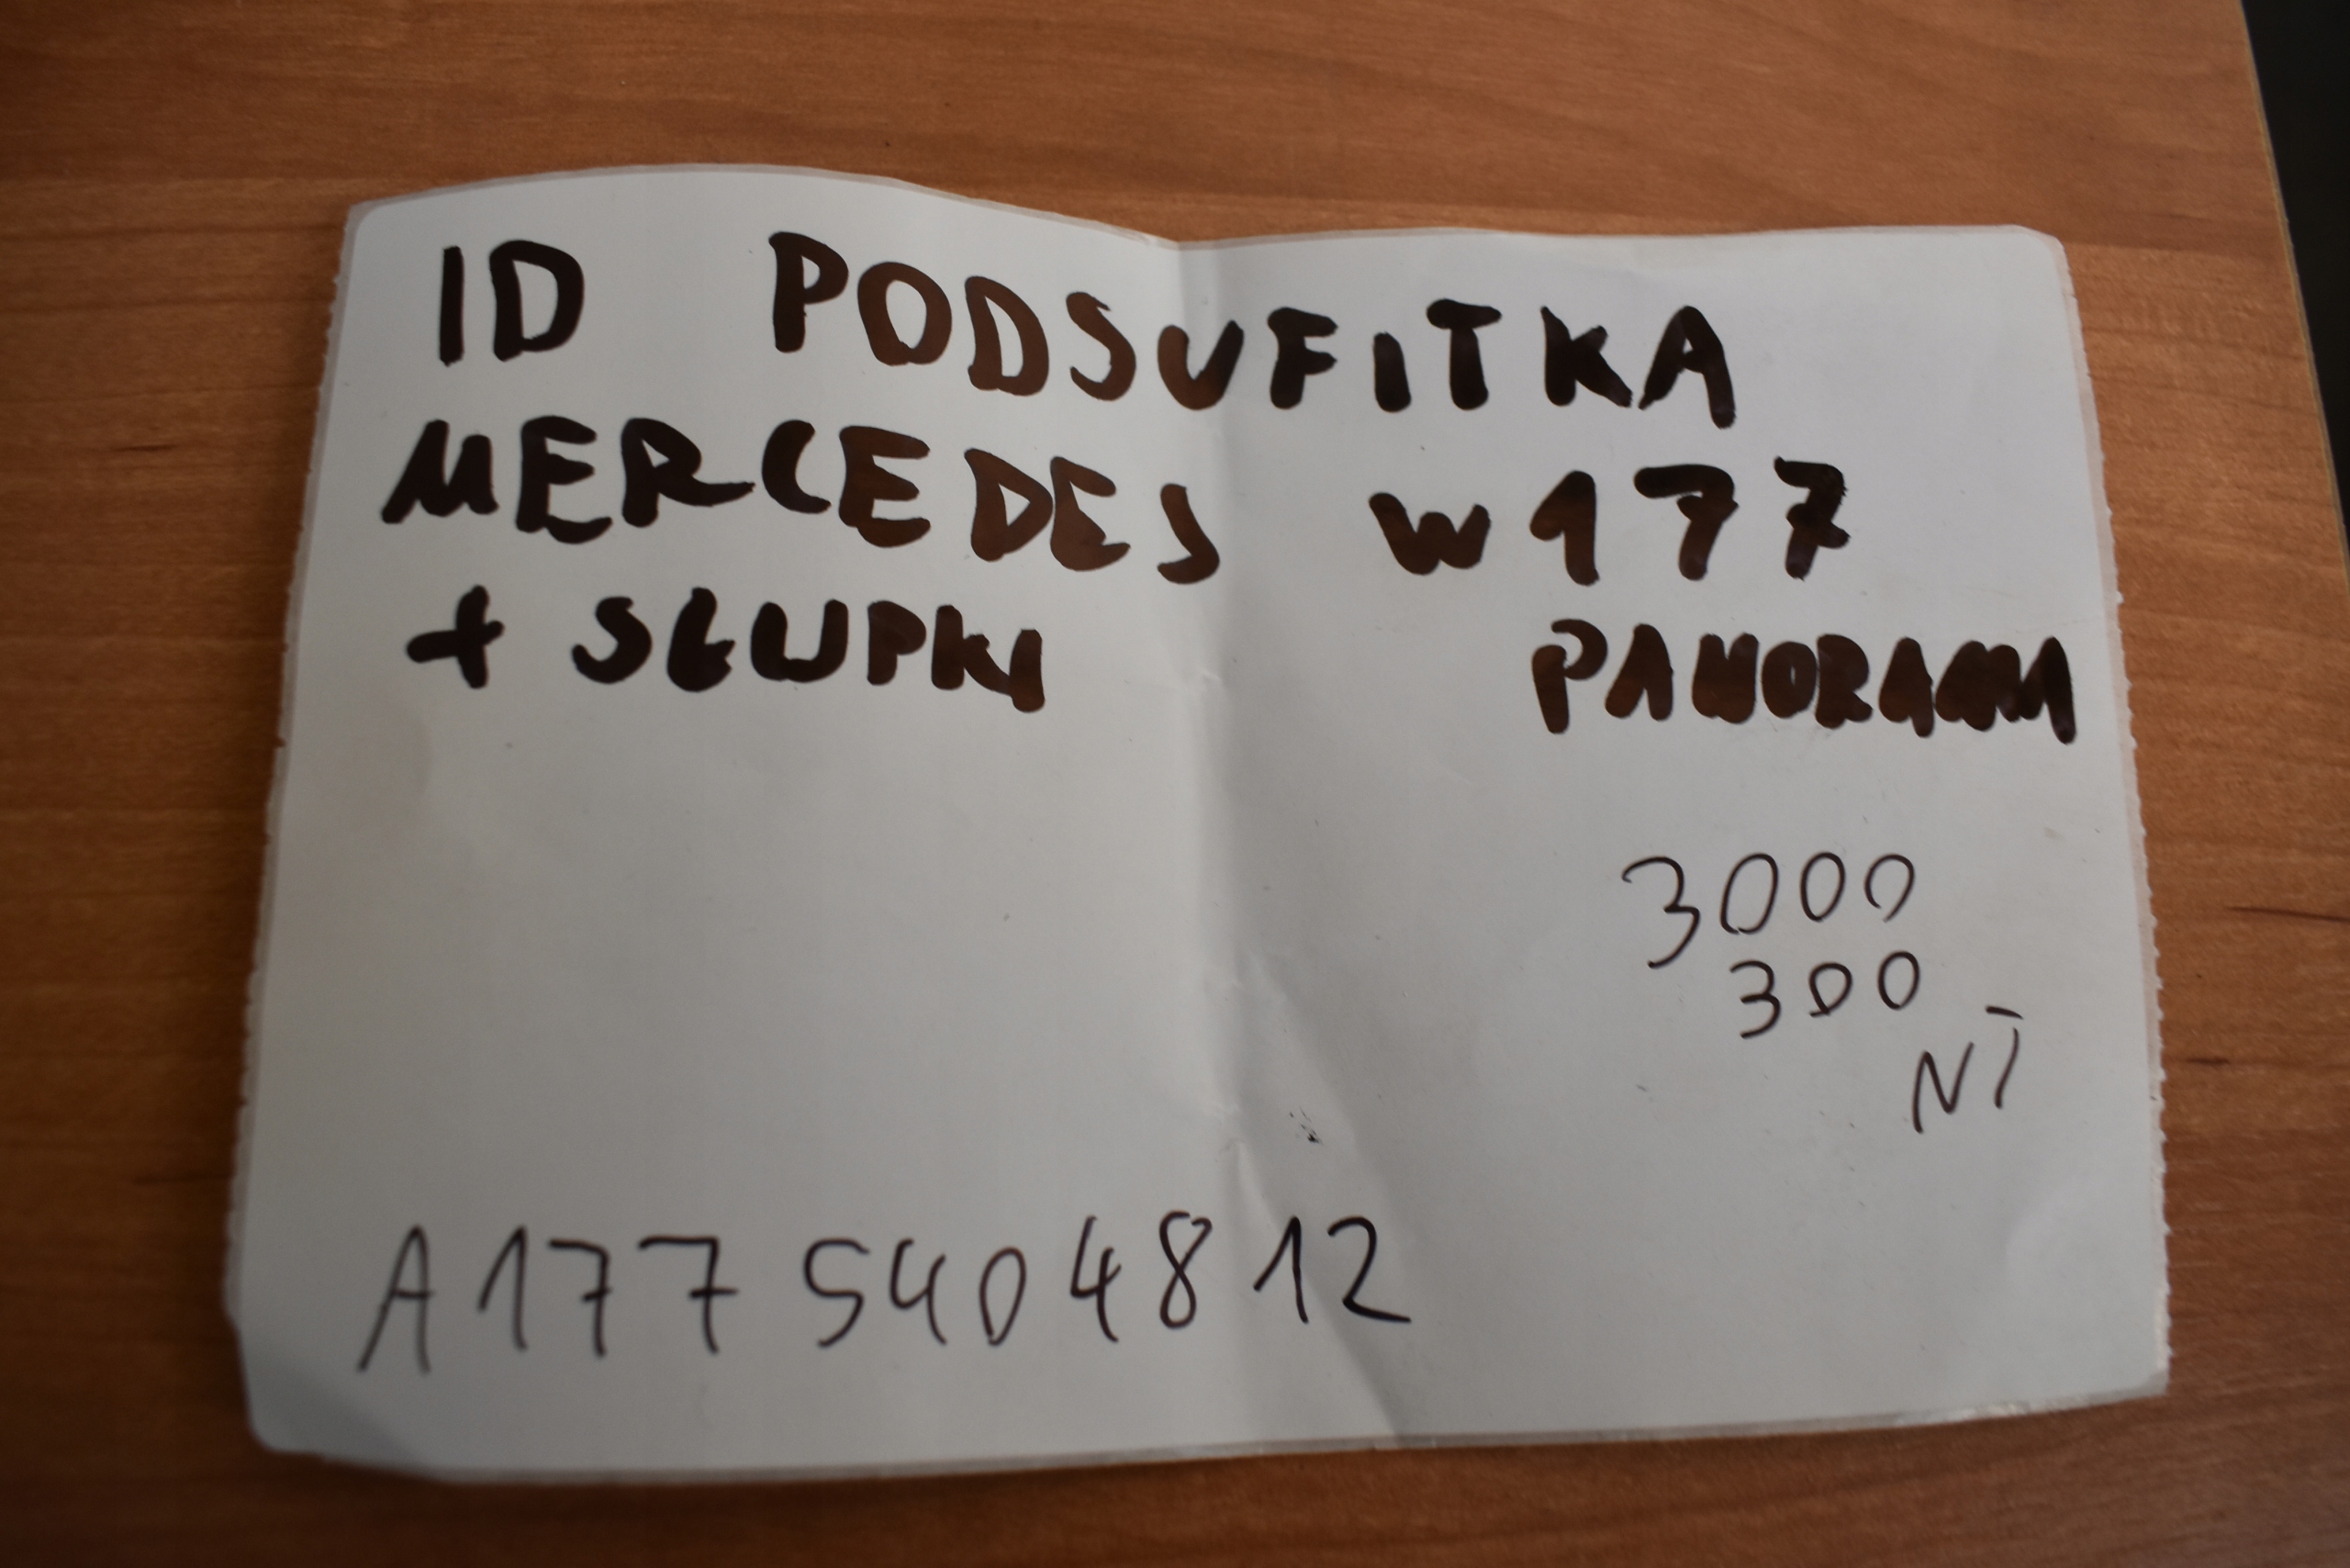 ID PODSUFITKA
MERCEDES W177
+ SŁUPKI PANORAMA
3000
300
NT
A177 540 48 12